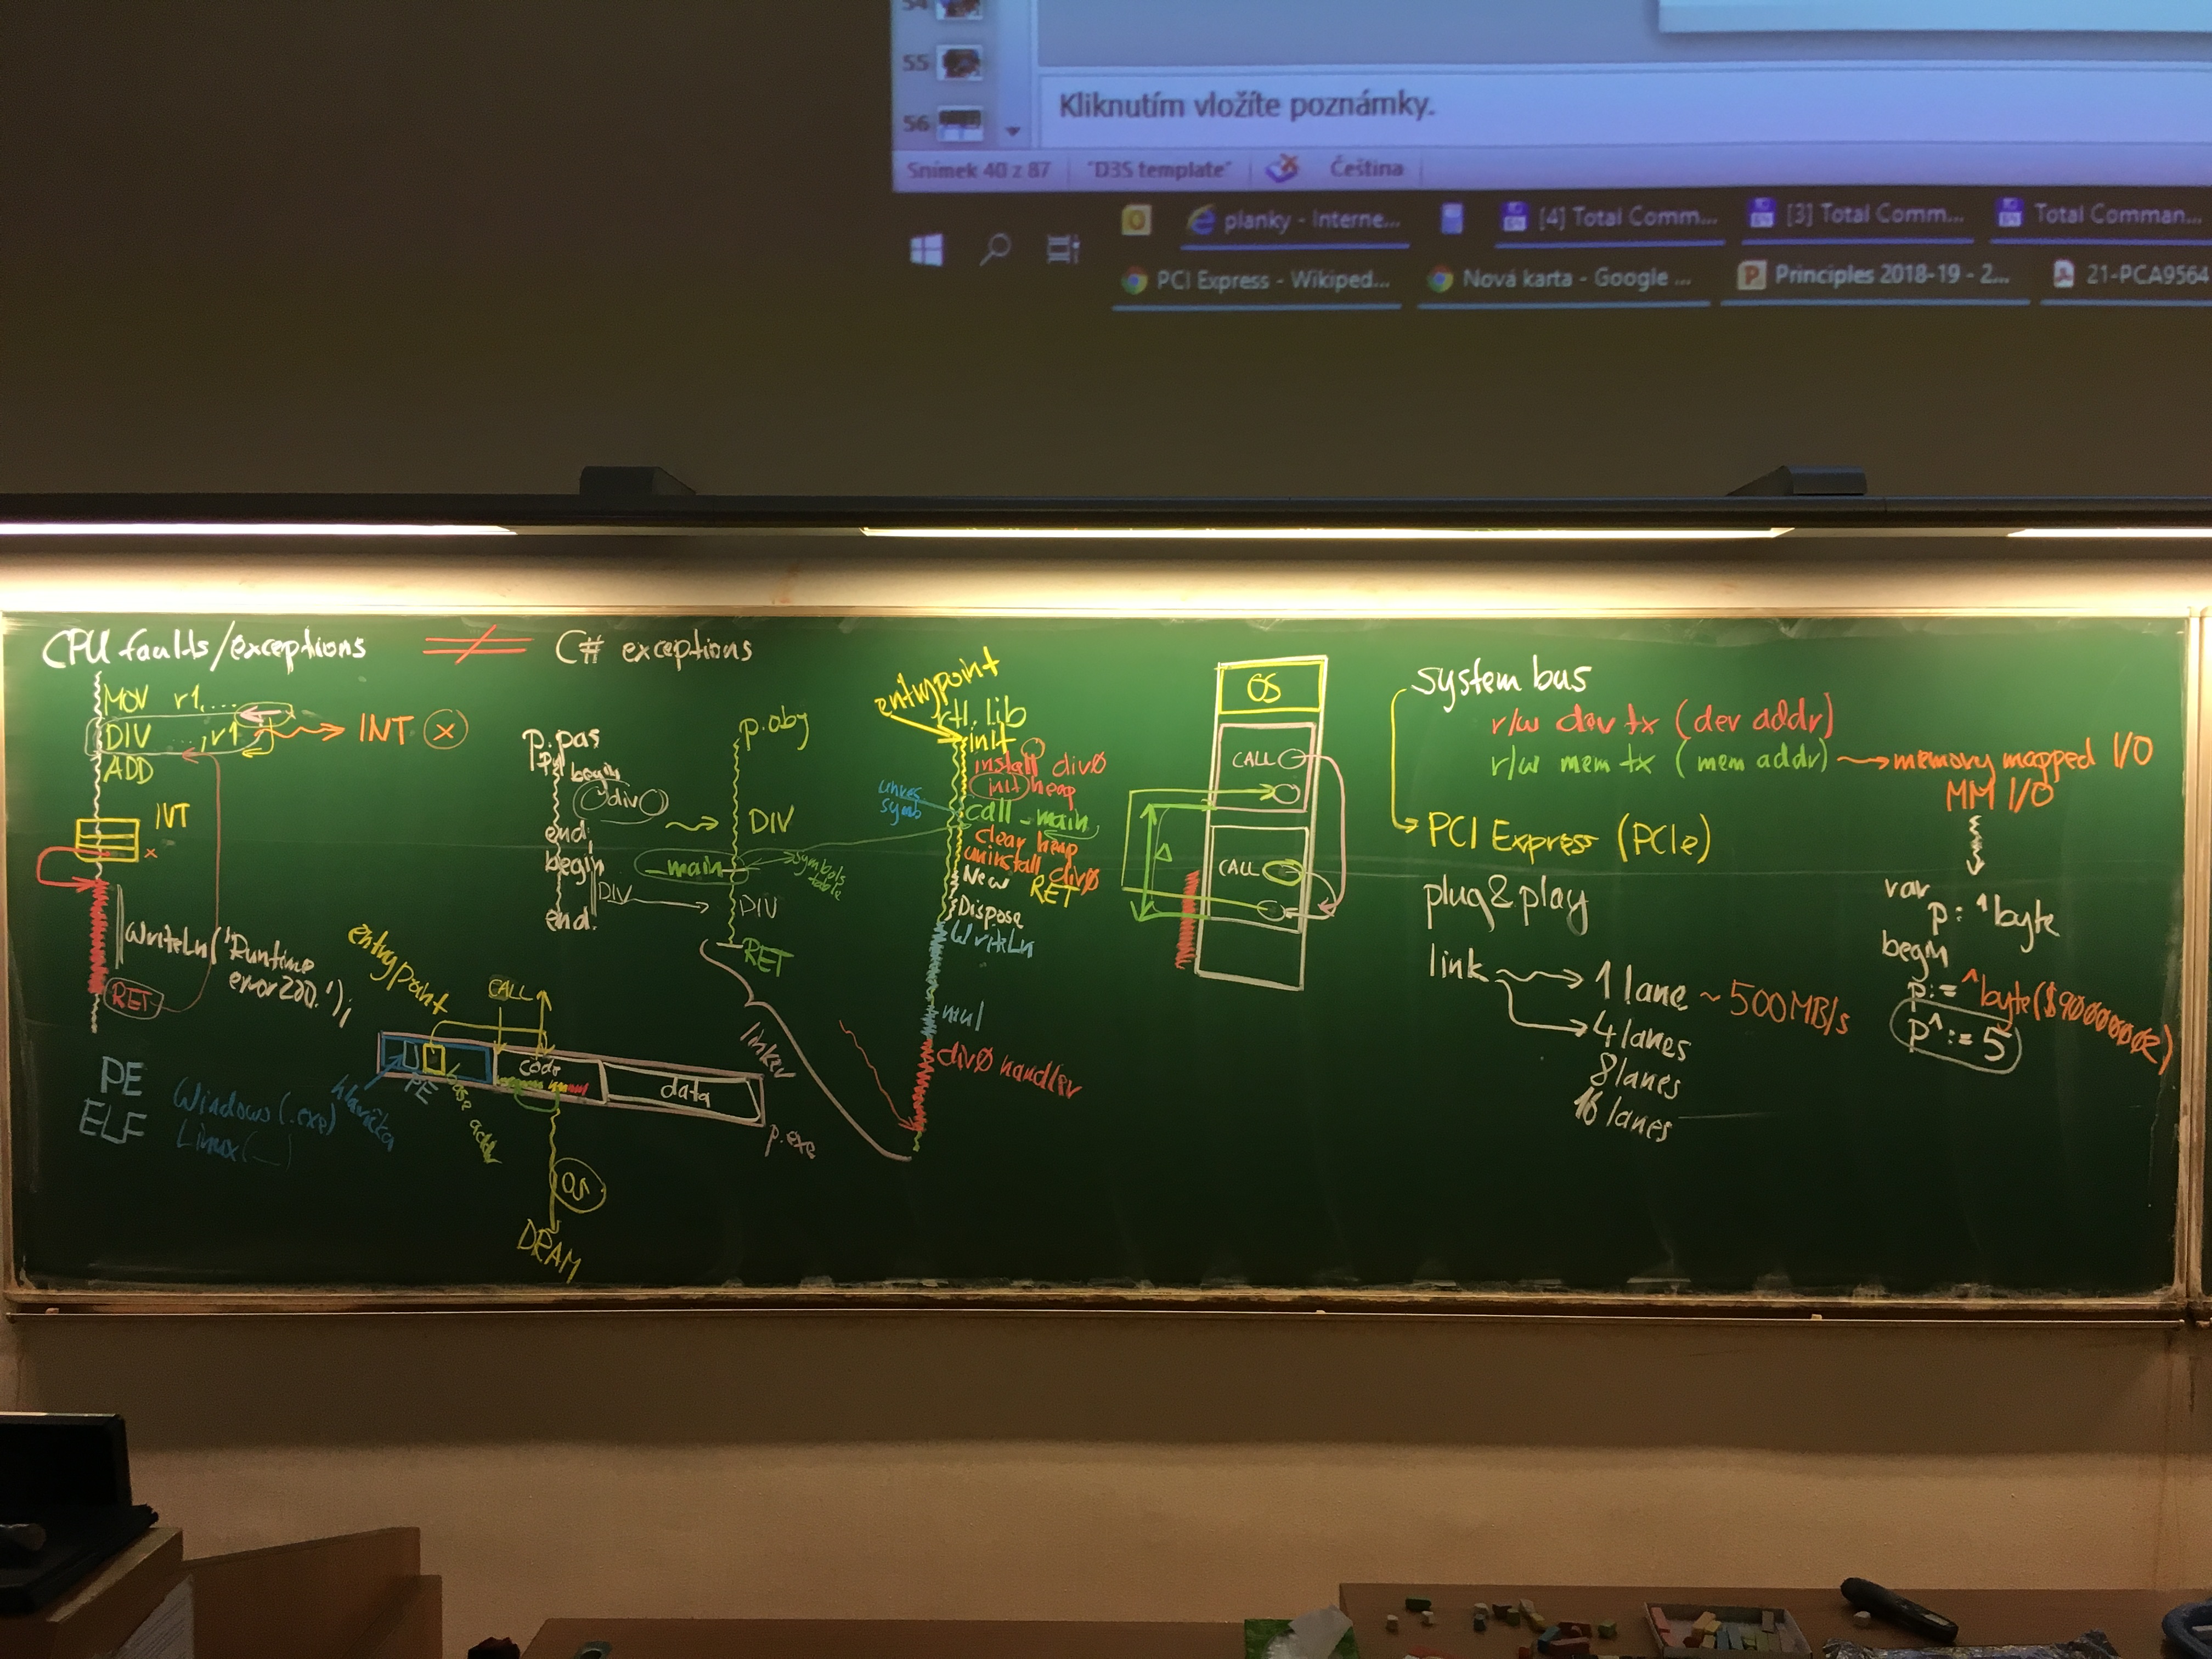 54
55
56
Kliknutím vložíte poznámky.
Snímek 40 z 87 "D3S template" Čeština
planky - Interne... [4] Total Comm... [3] Total Comm... Total Comman...
PCI Express - Wikiped... Nová karta - Google ... Principles 2018-19 - 2... 21-PCA9564
CPU faults/exceptions ≠ C# exceptions
MOV r1,...
DIV ...,r1 → INT x
ADD
IVT
x
WriteLn('Runtime
error 200.');
RET
PE Windows (.exe)
ELF Linux (_)
hlavička
entrypoint
CALL
PE
base addr
code
data
p.exe
OS
DRAM
p.pas
begin
div
end;
begin
DIV
end.
p.obj
DIV
_main
symbols
table
DIV
RET
linker
entrypoint
rtl.lib
init
install div0
init heap
unres
symb
call _main
clear heap
uninstall div0
New RET
Dispose
WriteLn
mul
div0 handler
OS
CALL
Δ
CALL
system bus
r/w dev tx (dev addr)
r/w mem tx (mem addr) → memory mapped I/O
MM I/O
PCI Express (PCIe)
plug&play
link → 1 lane ~ 500MB/s
4 lanes
8 lanes
16 lanes
var
p: ^byte
begin
p^ := 5